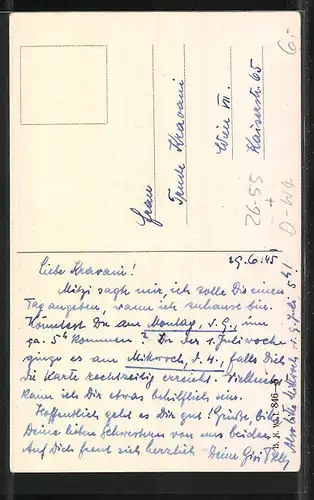 Frau
Trude Kravani
Wien VII.
Kaiserstr. 65
6.-
26-55
+
D-WQ
29.6.45
Liebe Kravani!
Mitzi sagte mir, ich solle Dir einen
Tag angeben, wann ich zuhause bin.
Könntest Du am Montag, d. 9., um
ca. 5h kommen? In der 1. Juliwoche
ginge es am Mittwoch, d. 4., falls Dich
die Karte rechtzeitig erreicht. Vielleicht
kann ich Dir etwas behilflich sein.
Hoffentlich geht es Dir gut! Grüße, bitte,
Deine lieben Schwestern von uns beiden.
Auf Dich freut sich herzlich Deine Gisi
Also bitte Mittwoch, d. 4. Juli 5h!
B. K. W. I. 846-